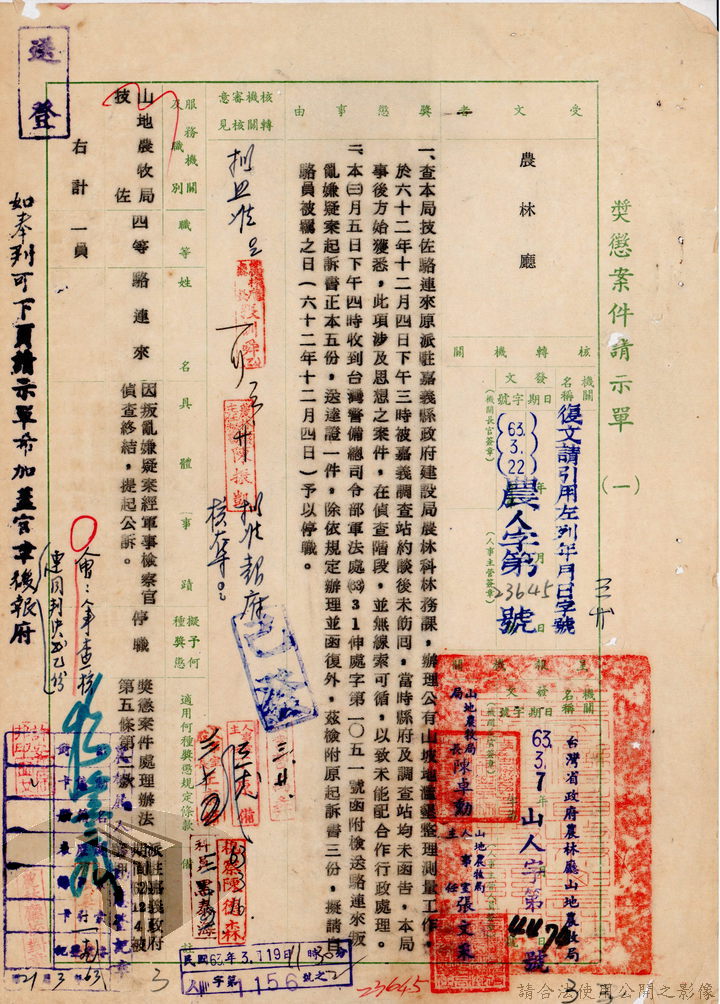 獎懲案件請示單 (一)
受文者
農林廳
核轉機關
機關名稱
發文日期字號
復文請引用左列年月日字號
63.3.22
農人字第23645號
(機關長官簽章)
(人事主管簽章)
主報機關
機關名稱
台灣省政府農林廳山地農牧局
發文日期字號
63.3.7
山人字第4474號
山地農牧局局長陳車勳
山地農牧局人事室主任張文東
獎懲事由
一、查本局技佐駱連來原派駐嘉義縣政府建設局農林科林務課,辦理公有山坡地濫墾整理測量工作,
於六十二年十二月四日下午三時被嘉義調查站約談後未飭囘,當時縣府及調查站均未函告,本局
事後方始獲悉,此項涉及思想之案件,在偵查階段,並無線索可循,以致未能配合行政處理。
二、本㈢月五日下午四時收到台灣警備總司令部軍法處(63)31伸處字第一〇五一號函附檢送駱連來叛
亂嫌疑案起訴書正本五份,送達證一件,除依規定辦理並函復外,茲檢附原起訴書三份,擬請自
駱員被羈之日(六十二年十二月四日)予以停職。
核轉機關審核意見
擬照准
擬准報府
核奪
已發
服務機關及職別
職等
姓名
具體事蹟
擬予何種獎懲
適用何種獎懲規定條款
備註
山地農牧局技佐
四等
駱連來
因叛亂嫌疑案經軍事檢察官
偵查終結,提起公訴。
停職
獎懲案件處理辦法
第五條第二款
派駐嘉義縣政府
期間62.12.4被
右計一員
送登
如奉到可下頁請示單希加蓋官章後報府
民國63年3月19日
人字第1156號之2
23645
21 3 63
請合法使用公開之影像